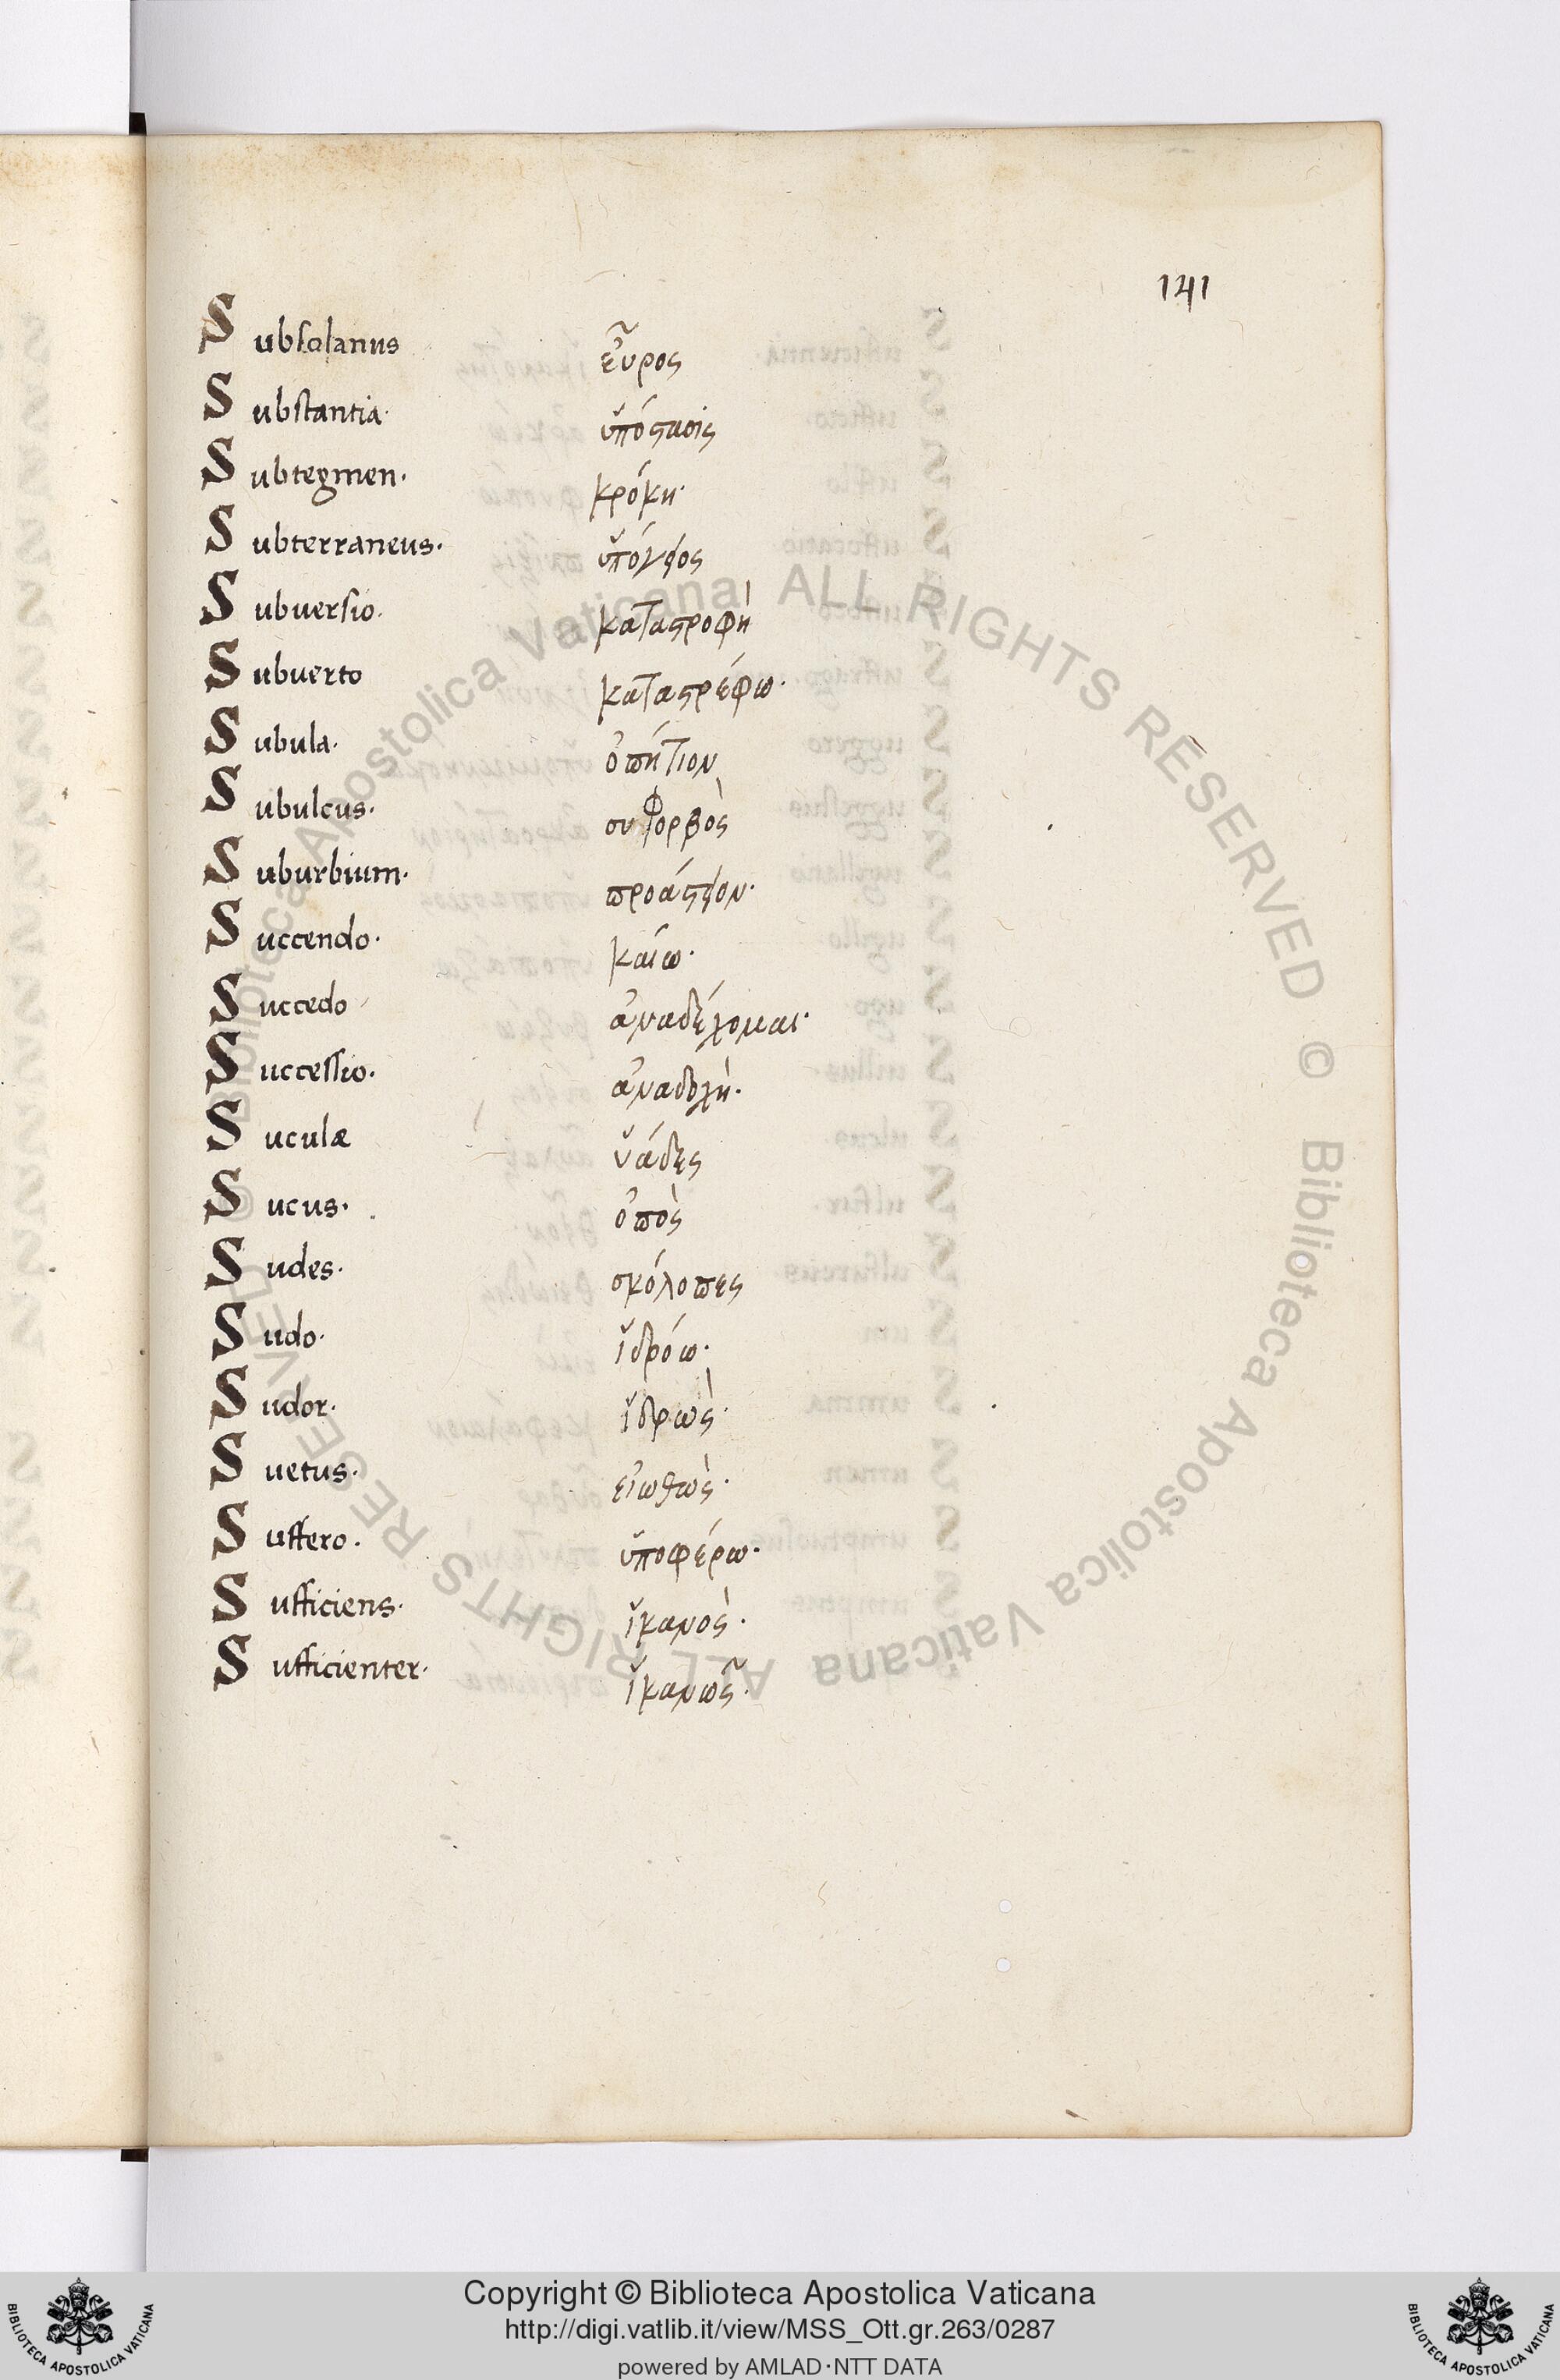 141
Subsolanus εὖρος
Substantia· ὑπόστασις
Subtegmen· κρόκη·
Subterraneus· ὑπόγειος
Subversio· καταστροφὴ
Subuerto καταστρέφω·
Subula· ὀπήτιον
Subulcus· συφορβὸς
Suburbium· προάστειον·
Succendo· καίω·
Succedo ἀναδέχομαι·
Successio· ἀναδοχὴ·
Suculæ ὑάδες
Sucus· ὀπὸς
Sudes· σκόλοπες
Sudo· ἱδρόω·
Sudor· ἱδρὼς·
Suetus· εἰωθὼς·
Suffero· ὑποφέρω·
Sufficiens· ἱκανὸς·
Sufficienter· ἱκανῶς·
Biblioteca Apostolica Vaticana ALL RIGHTS RESERVED ©
Biblioteca Apostolica Vaticana ALL RIGHTS RESERVED ©
Copyright © Biblioteca Apostolica Vaticana
http://digi.vatlib.it/view/MSS_Ott.gr.263/0287
powered by AMLAD·NTT DATA
BIBLIOTECA APOSTOLICA VATICANA
BIBLIOTECA APOSTOLICA VATICANA